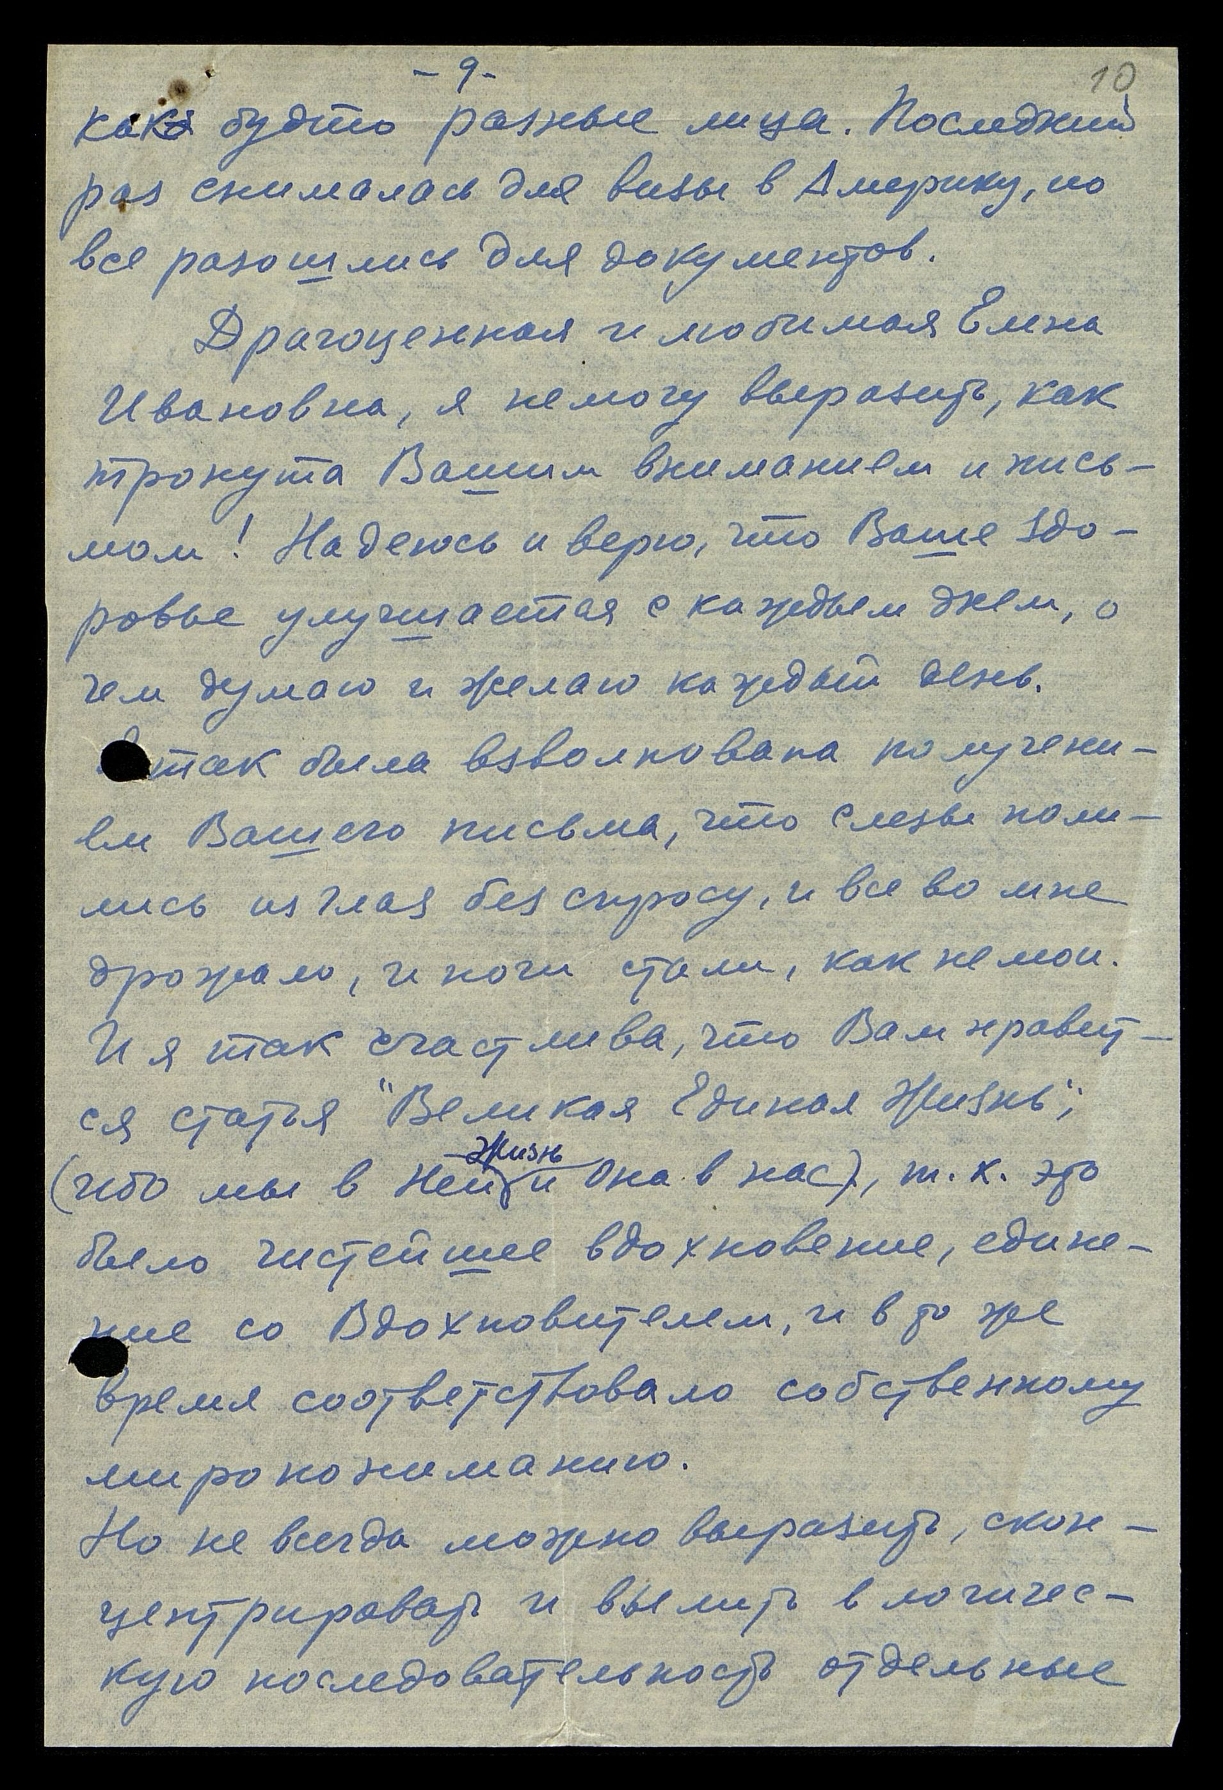 -9-
10
как будто разные лица. Последний
раз снималась для визы в Америку, но
все разошлись для документов.
Драгоценная и любимая Елена
Ивановна, я не могу выразить, как
тронута Вашим вниманием и пись-
мом! Надеюсь и верю, что Ваше здо-
ровье улучшается с каждым днем, о
чем думаю и желаю каждый день.
так была взволнована получени-
ем Вашего письма, что слезы поли-
лись из глаз без спросу, и все во мне
дрожало, и ноги стали, как не мои.
И я так счастлива, что Вам нравит-
ся статья "Великая Единая Жизнь",
жизнь
(ибо мы в Ней и Она в нас), т. к. это
было чистейшее вдохновение, едине-
ние со Вдохновителем, и в то же
время соответствовало собственному
миропониманию.
Но не всегда можно выразить, скон-
центрировать и вылить в логичес-
кую последовательность отдельные